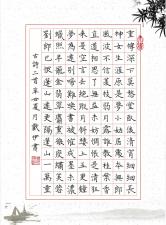 重幃深下莫愁堂臥後清宵細細長
神女生涯原是夢小姑居處本無郎
風波不信菱枝弱月露誰教桂葉香
直道相思了無益未妨惆悵是清狂
來是空言去絕蹤月斜樓上五更鐘
夢為遠別啼難喚書被催成墨未濃
蠟照半籠金翡翠麝熏微度繡芙蓉
劉郎已恨蓬山遠更隔蓬山一萬重
古詩二首辛丑夏月戴伊書